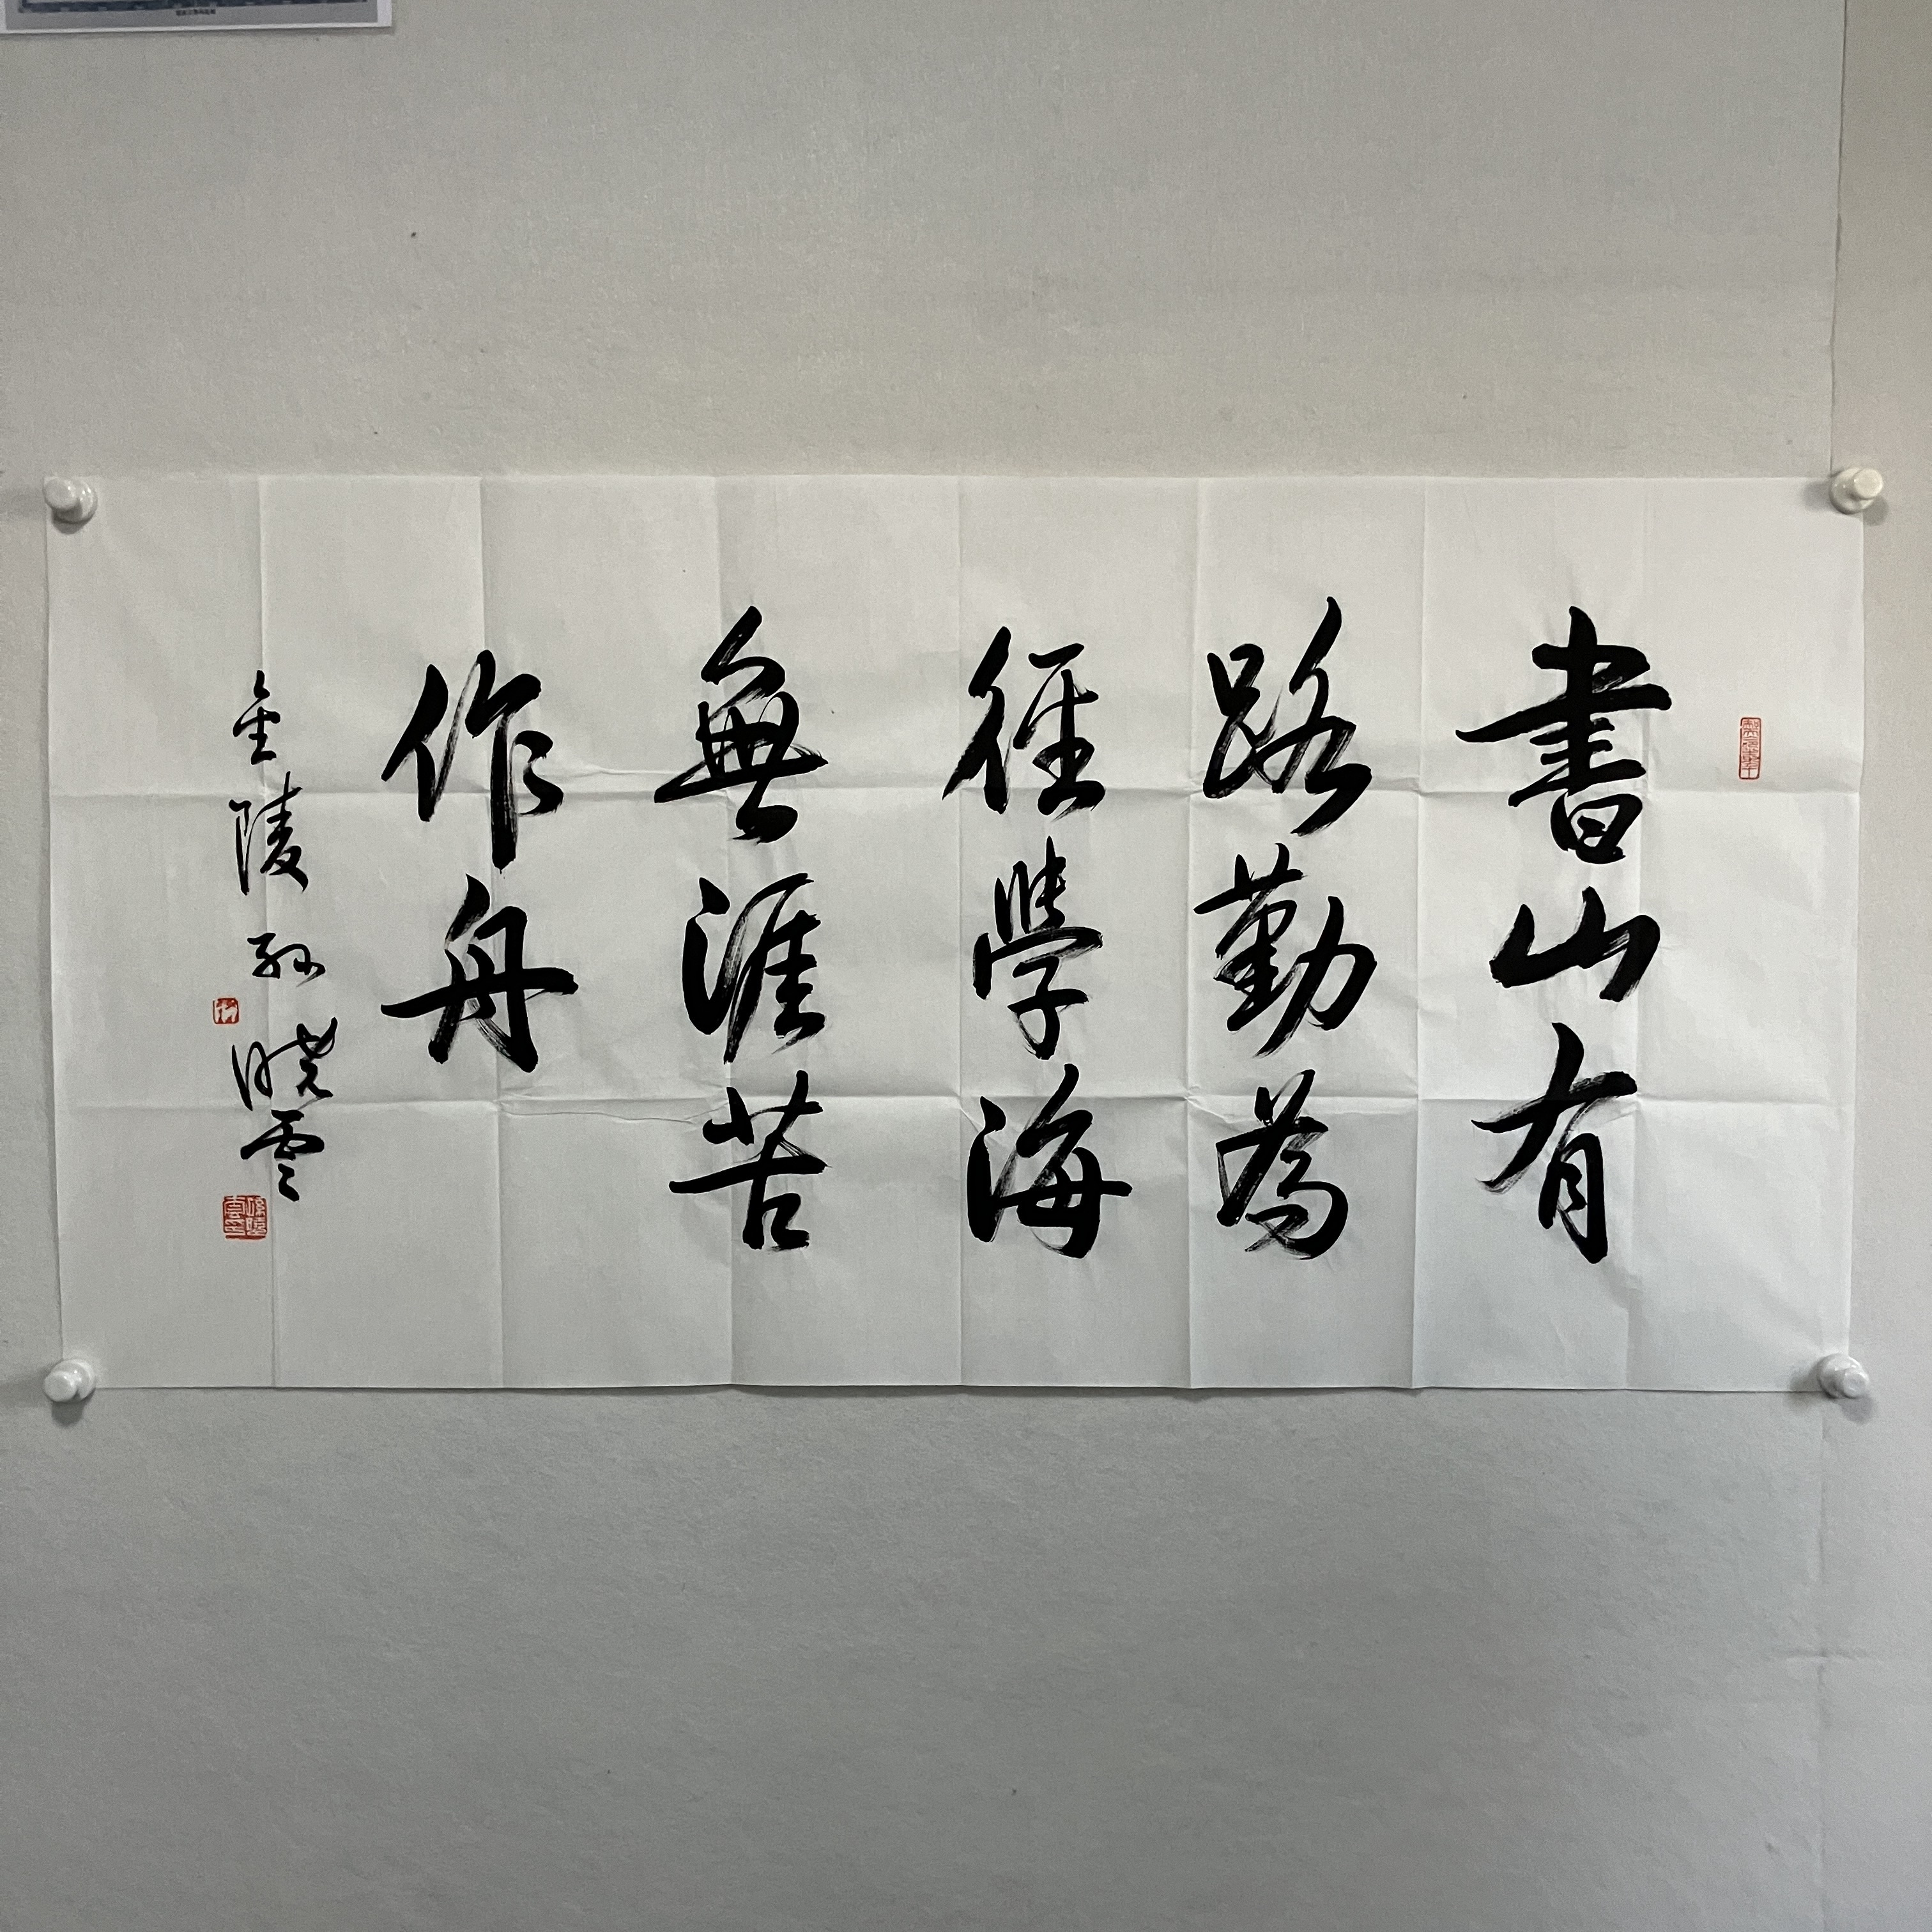 書山有
路勤為
徑學海
無涯苦
作舟
金陵孙晓雲